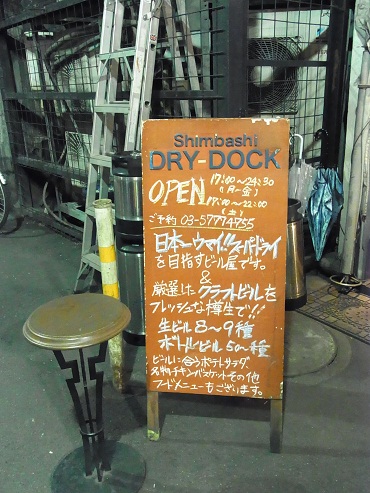 Shimbashi
DRY-DOCK
OPEN 17:00〜24:30
(月〜金)
17:00〜22:00
(土)
ご予約 03-57774755
日本一ウマイ!スーパードライ
を目指すビール屋です。
&
厳選したクラフトビールを
フレッシュな樽生で!!
生ビール8〜9種
ボトルビール50〜種
ビールに合うポテトサラダ、
名物チキンバスケットその他
フードメニューもございます。